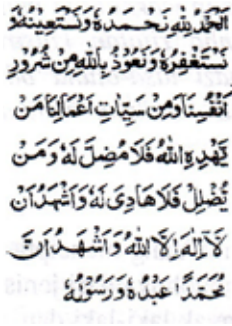 اَلْحَمْدُ لِلّٰهِ نَحْمَدُهٗ وَنَسْتَعِيْنُهٗ وَ
نَسْتَغْفِرُهٗ وَنَعُوْذُ بِاللّٰهِ مِنْ شُرُوْرِ
اَنْفُسِنَا وَمِنْ سَيِّاٰتِ اَعْمَالِنَا مَنْ
يَهْدِهِ اللّٰهُ فَلَا مُضِلَّ لَهٗ وَمَنْ
يُضْلِلْ فَلَا هَادِيَ لَهٗ وَاَشْهَدُ اَنْ
لَّا اِلٰهَ اِلَّا اللّٰهُ وَاَشْهَدُ اَنَّ
مُحَمَّدًا عَبْدُهٗ وَرَسُوْلُهٗ